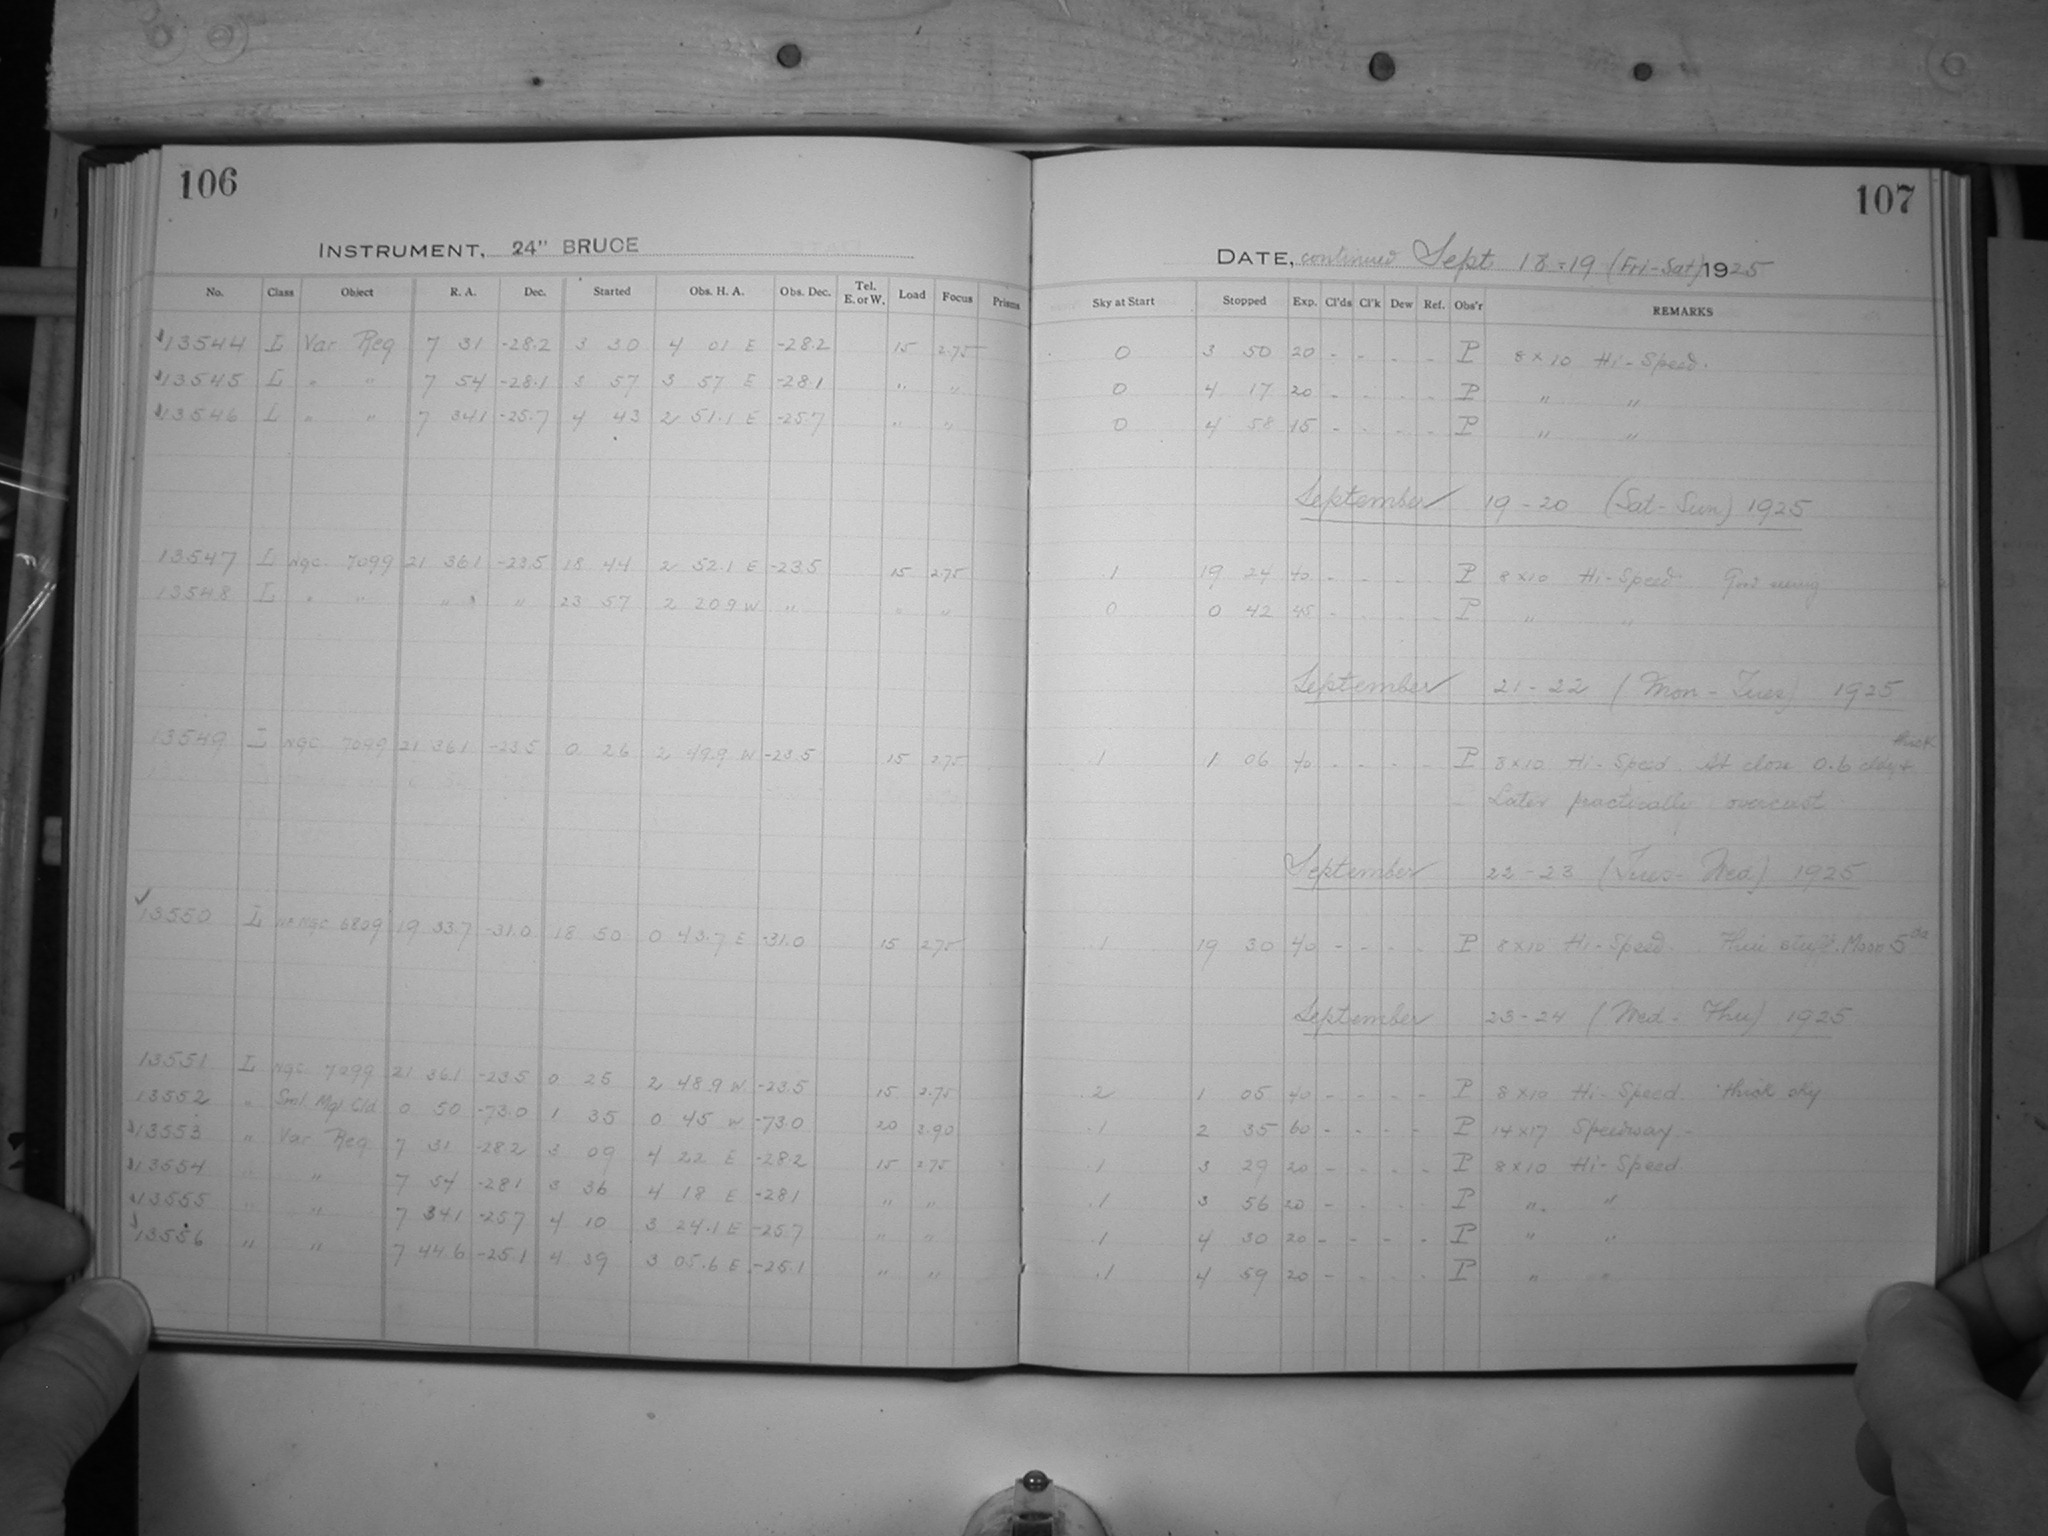 106
INSTRUMENT, 24" BRUCE
No. Class Object R. A. Dec. Started Obs. H. A. Obs. Dec. Tel. E. or W. Load Focus Prisms
13544 L Var Reg 7 31 -28.2 3 30 4 01 E -28.2 15 2.75
13545 L " " 7 54 -28.1 3 57 3 57 E -28.1 " "
13546 L " " 7 34.1 -25.7 4 43 2 51.1 E -25.7 " "
13547 L NGC 7099 21 36.1 -23.5 18 44 2 52.1 E -23.5 15 2.75
13548 L " " " " 23 57 2 20.9 W " " "
13549 L NGC 7099 21 36.1 -23.5 0 26 2 49.9 W -23.5 15 2.75
13550 L NGC 6809 19 33.7 -31.0 18 50 0 43.7 E -31.0 15 2.75
13551 L NGC 7099 21 36.1 -23.5 0 25 2 48.9 W -23.5 15 2.75
13552 " Sml Mgl Cld 0 50 -73.0 1 35 0 45 W -73.0 20 2.90
13553 " Var Reg 7 31 -28.2 3 09 4 22 E -28.2 15 2.75
13554 " " 7 54 -28.1 3 36 4 18 E -28.1 " "
13555 " " 7 34.1 -25.7 4 10 3 24.1 E -25.7 " "
13556 " " 7 44.6 -25.1 4 39 3 05.6 E -25.1 " "
107
DATE, continued Sept 18-19 (Fri-Sat) 1925
Sky at Start Stopped Exp. Cl'ds Cl'k Dew Ref. Obs'r REMARKS
0 3 50 20 - - - - P 8x10 Hi-Speed.
0 4 17 20 - - - - P " "
0 4 58 15 - - - - P " "
September 19-20 (Sat-Sun) 1925
.1 19 24 40 - - - - P 8x10 Hi-Speed. Good seeing
0 0 42 45 - - - - P " "
September 21-22 (Mon-Tues) 1925
thick
.1 1 06 40 - - - - P 8x10 Hi-Speed. At close 0.6 cldy +
Later practically overcast
September 22-23 (Tues-Wed) 1925
.1 19 30 40 - - - - P 8x10 Hi-Speed. Thin stuff. Moon 5 da
September 23-24 (Wed-Thu) 1925
.2 1 05 40 - - - - P 8x10 Hi-Speed. thick sky
.1 2 35 60 - - - - P 14x17 Speedway -
.1 3 29 20 - - - - P 8x10 Hi-Speed
.1 3 56 20 - - - - P " "
.1 4 30 20 - - - - P " "
.1 4 59 20 - - - - P " "